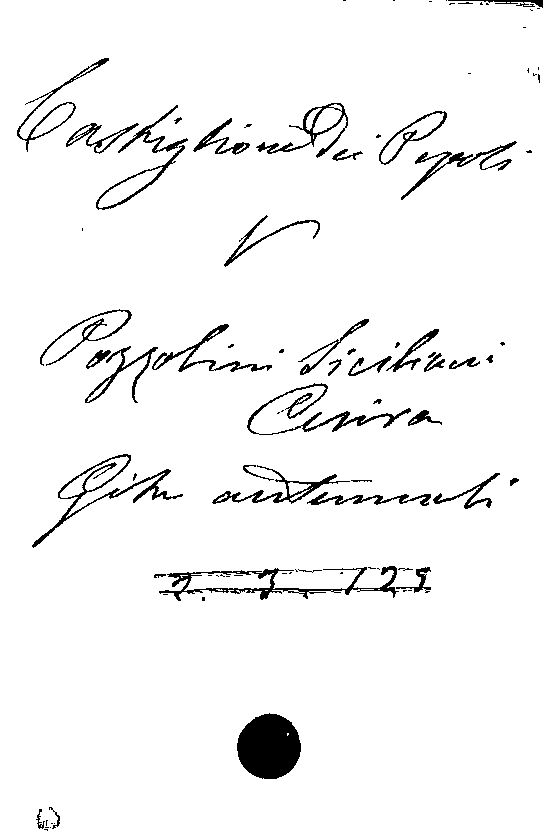 Castiglione Dei Pepoli
V
Pozzolini Siciliani
Cesira
Gite autunnali
2. 3. 129